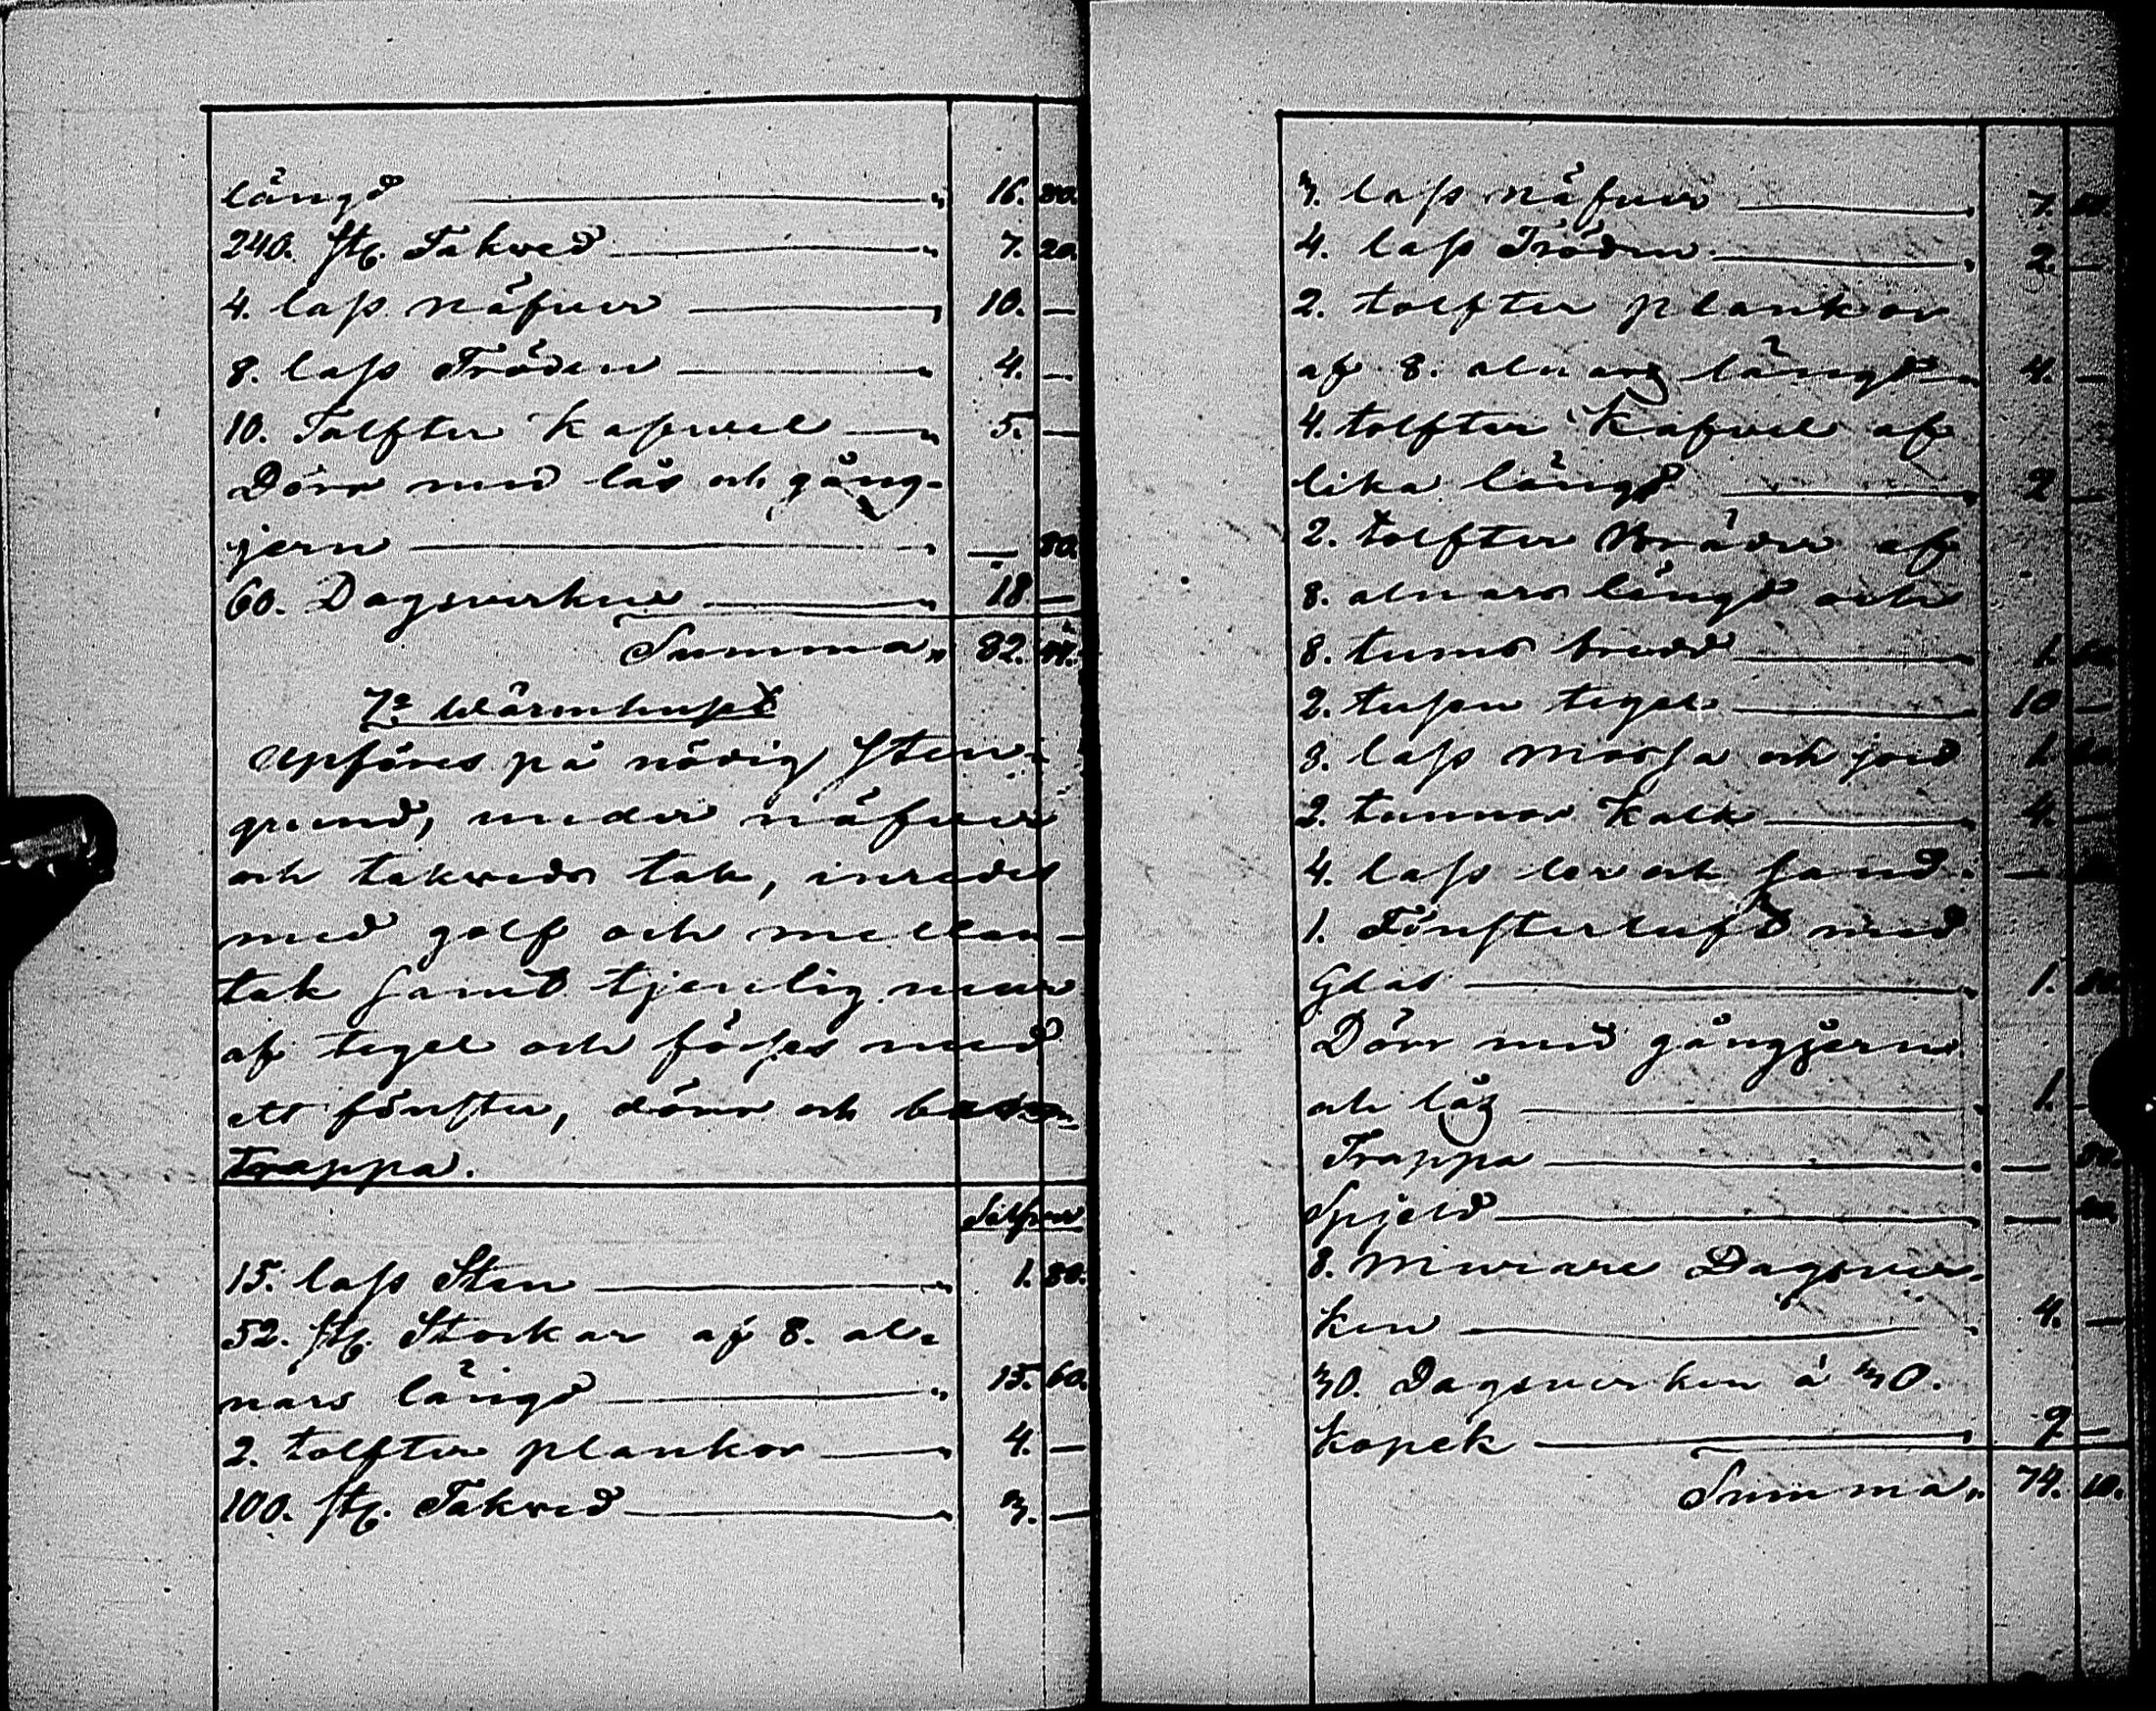 längd 16. 80.
240. st. Takved 7. 20.
4. lass näfver 10. —
8. lass Tröden 4. —
10. Tolfter Kafvel 5. —
Dörr med lås och gång-
jern — 80.
60. Dagsverken 18 —
Summa 82.
7o Wärmhuset
Upföres på nödig sten-
grund, under näfver
och takveds tak, inredes
med golf och mellan-
tak samt tjenlig mur
af tegel och förses med
ett fönster, dörr och
trappa.
Silfver
15. lass Sten 1. 80.
52. st. Stockar af 8. al-
nars längd 15. 60.
2. tolfter plankor 4. —
100. st. Takved 3. —
3. lass näfver 7.
4. lass Tröden 2. —
2. tolfter plankor
af 8. alnars längd 4. —
4. tolfter Kafvel af
lika längd 2 —
2. tolfter Bräder af
8. alnars längd och
8. tums bredd 1.
2. tusen tegel 10 —
3. lass mossa och jord 1.
2. tunnor Kalk 4. —
4. lass ler och sand —
1. Fönsterluft med
Glas 1.
Dörr med gångjern
och lås 1. —
Trappa — 50.
Spjeld —
8. Murare Dagsver-
ken 4. —
30. Dagsverken á 30.
Kopek 9 —
Summa 74. 10.